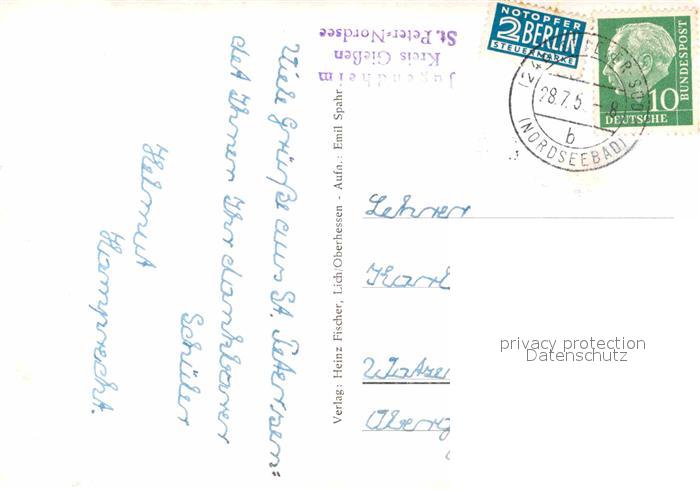 Jugendheim
Kreis Gießen
St. Peter-Nordsee
NOTOPFER
2 BERLIN
STEUERMARKE
DEUTSCHE BUNDESPOST
10
28.7.5
b
(NORDSEEBAD)
Viele Grüße aus St. Peter sen=
det Ihnen Ihr dankbarer
Schüler
Helmut
Hamprecht.
Verlag: Heinz Fischer, Lich/Oberhessen - Aufn.: Emil Spahr
Lehrer
Karl
privacy protection
Datenschutz